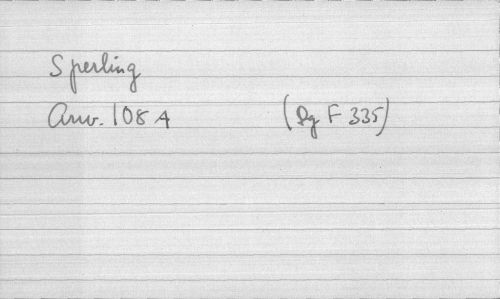 Sperling
Anv. 108 A (Dg F 335)